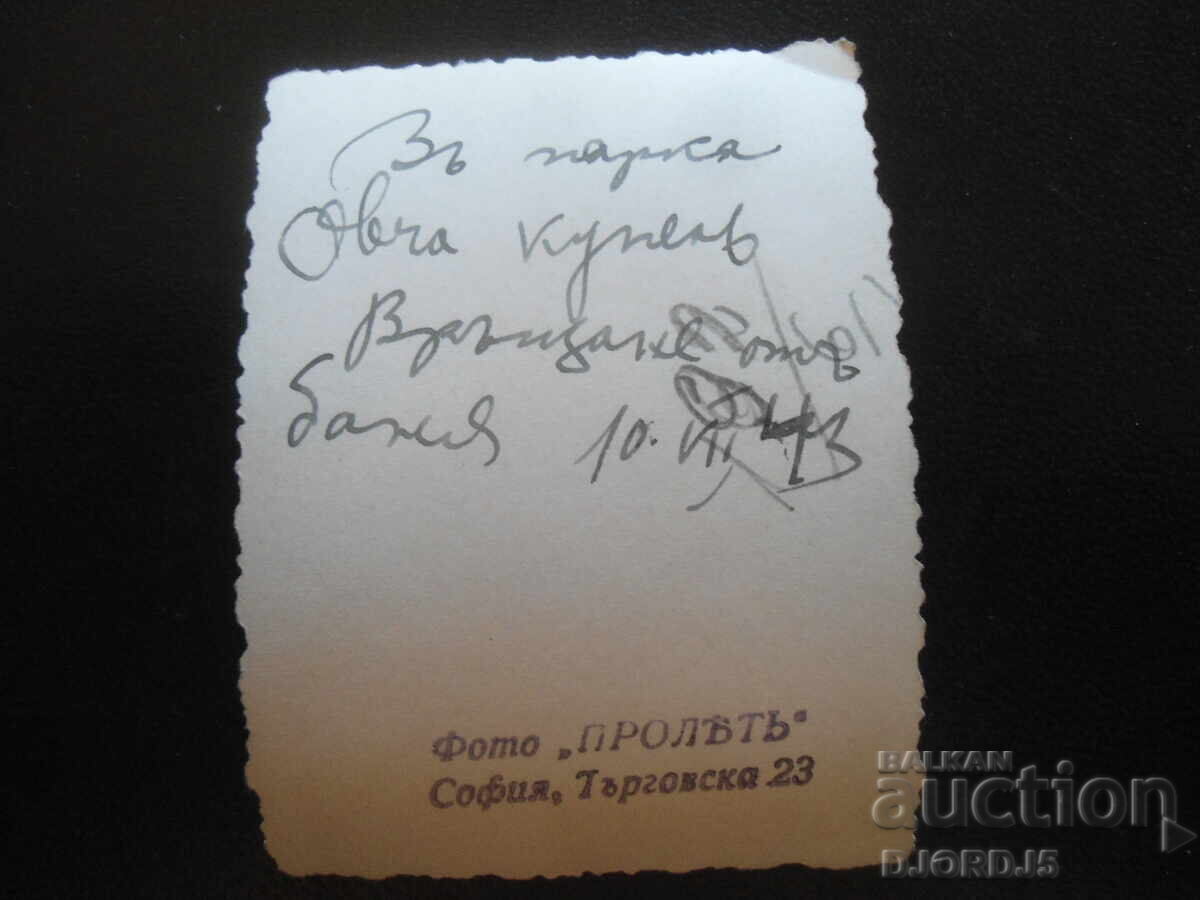 Въ парка
Овча купелъ
Връщане отъ
баня 10. VII 43
Фото „ПРОЛѢТЬ“
София, Търговска 23
BALKAN
auction
DJORDJ5